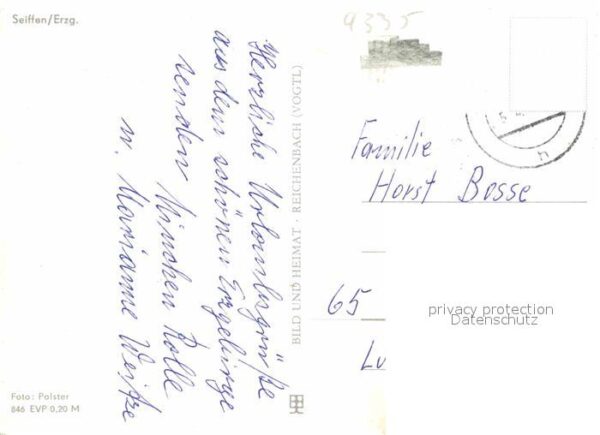 Seiffen/Erzg.
Herzliche Urlaubsgrüße
aus dem schönen Erzgebirge
senden
u. Marianne
BILD UND HEIMAT · REICHENBACH (VOGTL)
Foto: Polster
846 EVP 0,20 M
9335
Familie
Horst Bosse
65
privacy protection
Datenschutz